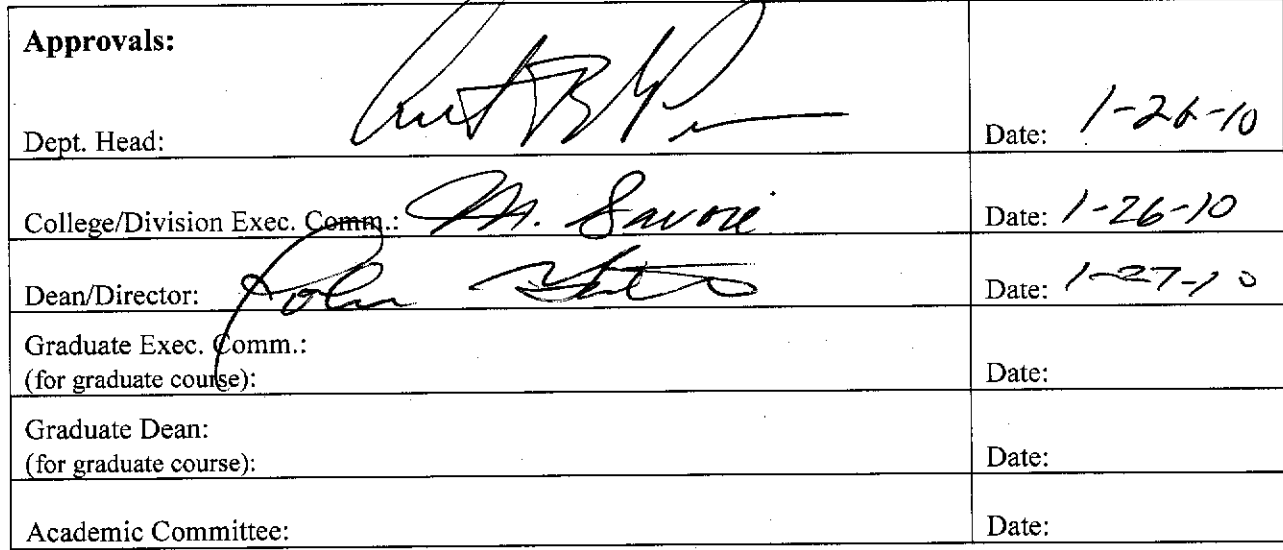 Approvals:
Dept. Head: Date: 1-26-10
College/Division Exec. Comm.: M. Savoie Date: 1-26-10
Dean/Director: Date: 1-27-10
Graduate Exec. Comm.:
(for graduate course): Date:
Graduate Dean:
(for graduate course): Date:
Academic Committee: Date: